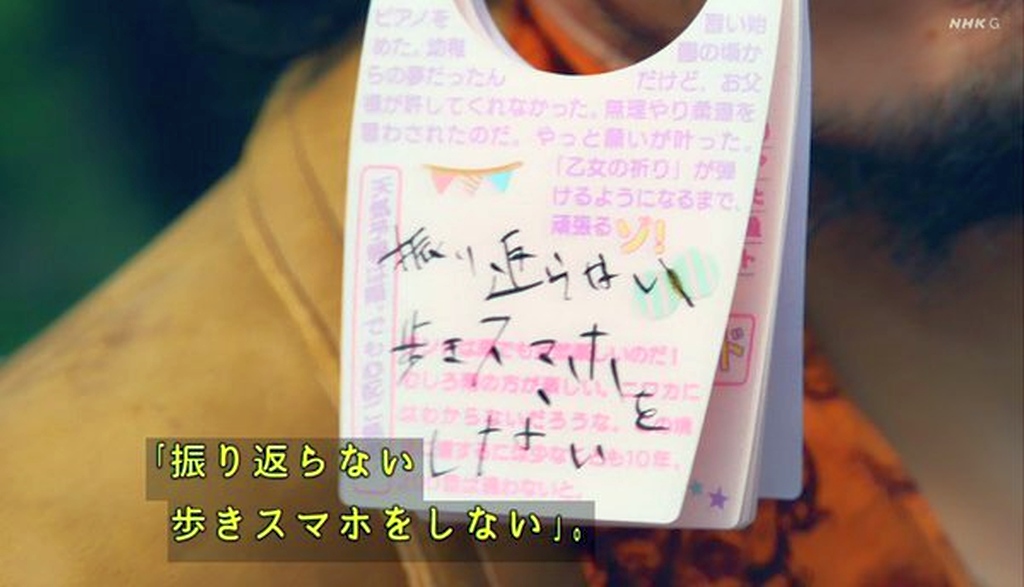 NHK G
ピアノを 習い始
めた。幼稚 園の頃か
らの夢だったん だけど、お父
様が許してくれなかった。無理やり柔道を
習わされたのだ。やっと願いが叶った。
「乙女の祈り」が弾
けるようになるまで、
頑張るゾ!
振り返らない
歩きスマホを
しない
むしろ
の方が楽しい。ニワカに
はわからないだろうな。
も10年、
「振り返らない
歩きスマホをしない」。